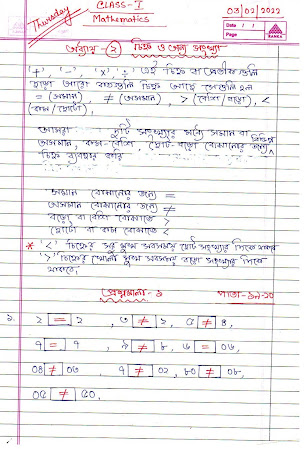 Thursday
CLASS - I
Mathematics
03/02/2022
Date : / /
Page :
RANKA
অধ্যায় ২ চিহ্ন ও তার সংখ্যা
'+', '-', 'x', '÷' এই চিহ্ন বা
ছাড়া আরো কতগুলি চিহ্ন আছে সেগুলি হল
= (সমান), ≠ (অসমান), > (বেশি/বড়ো), <
(কম/ছোটো),
আমরা দুটি সংখ্যার মধ্যে সমান বা
অসমান, কম-বেশি, ছোট-বড়ো বোঝানোর জন্য বিভিন্ন
চিহ্ন ব্যবহার করি
সমান বোঝানোর জন্যে =
অসমান বোঝানোর জন্যে ≠
বড়ো বা বেশি বোঝাতে >
ছোটো বা কম বোঝাতে <
* '<' চিহ্নের সরু মুখ সবসময় ছোট সংখ্যার দিকে থাকবে
'>' চিহ্নের খোলা মুখ সবসময় বড়ো সংখ্যার দিকে
থাকবে।
প্রশ্নমালা - ১ পাতা-১৯-২০
১. ২ = ২, ৩ ≠ ২, ৫ ≠ ৪,
৭ = ৭, ৯ ≠ ৮, ৬ = ০৬,
০৪ ≠ ০৩, ৭ ≠ ০২, ৮০ ≠ ০৮,
০৫ ≠ ৫০,